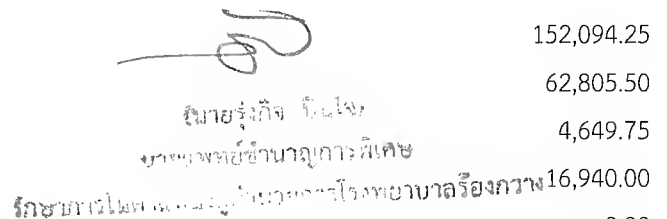 152,094.25
62,805.50
(นายรุ่งกิจ ปินใจ)
4,649.75
นายแพทย์ชำนาญการพิเศษ
รักษาการในตำแหน่งผู้อำนวยการโรงพยาบาลร้องกวาง 16,940.00